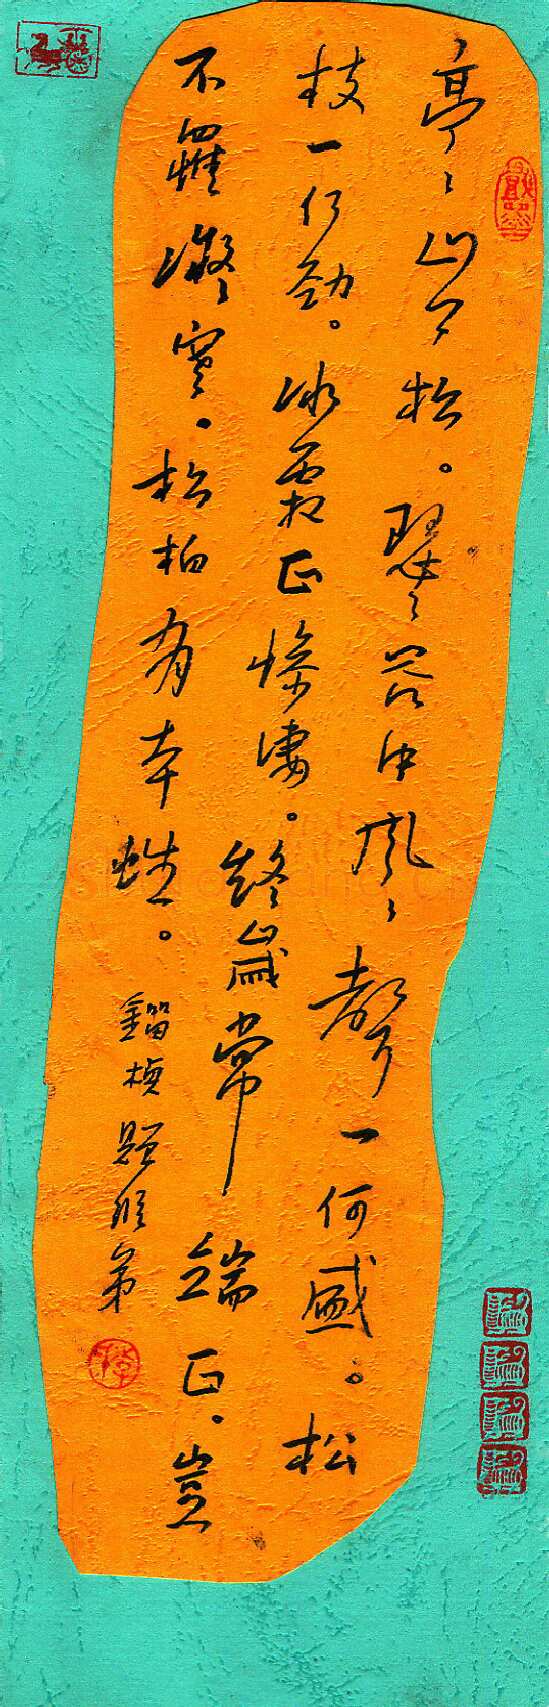 亭〻山上松。瑟〻谷中風〻聲一何盛。松
枝一何勁。冰霜正慘凄。終歲常端正。豈
不罹凝寒。松柏有本性。鎦楨贈從弟